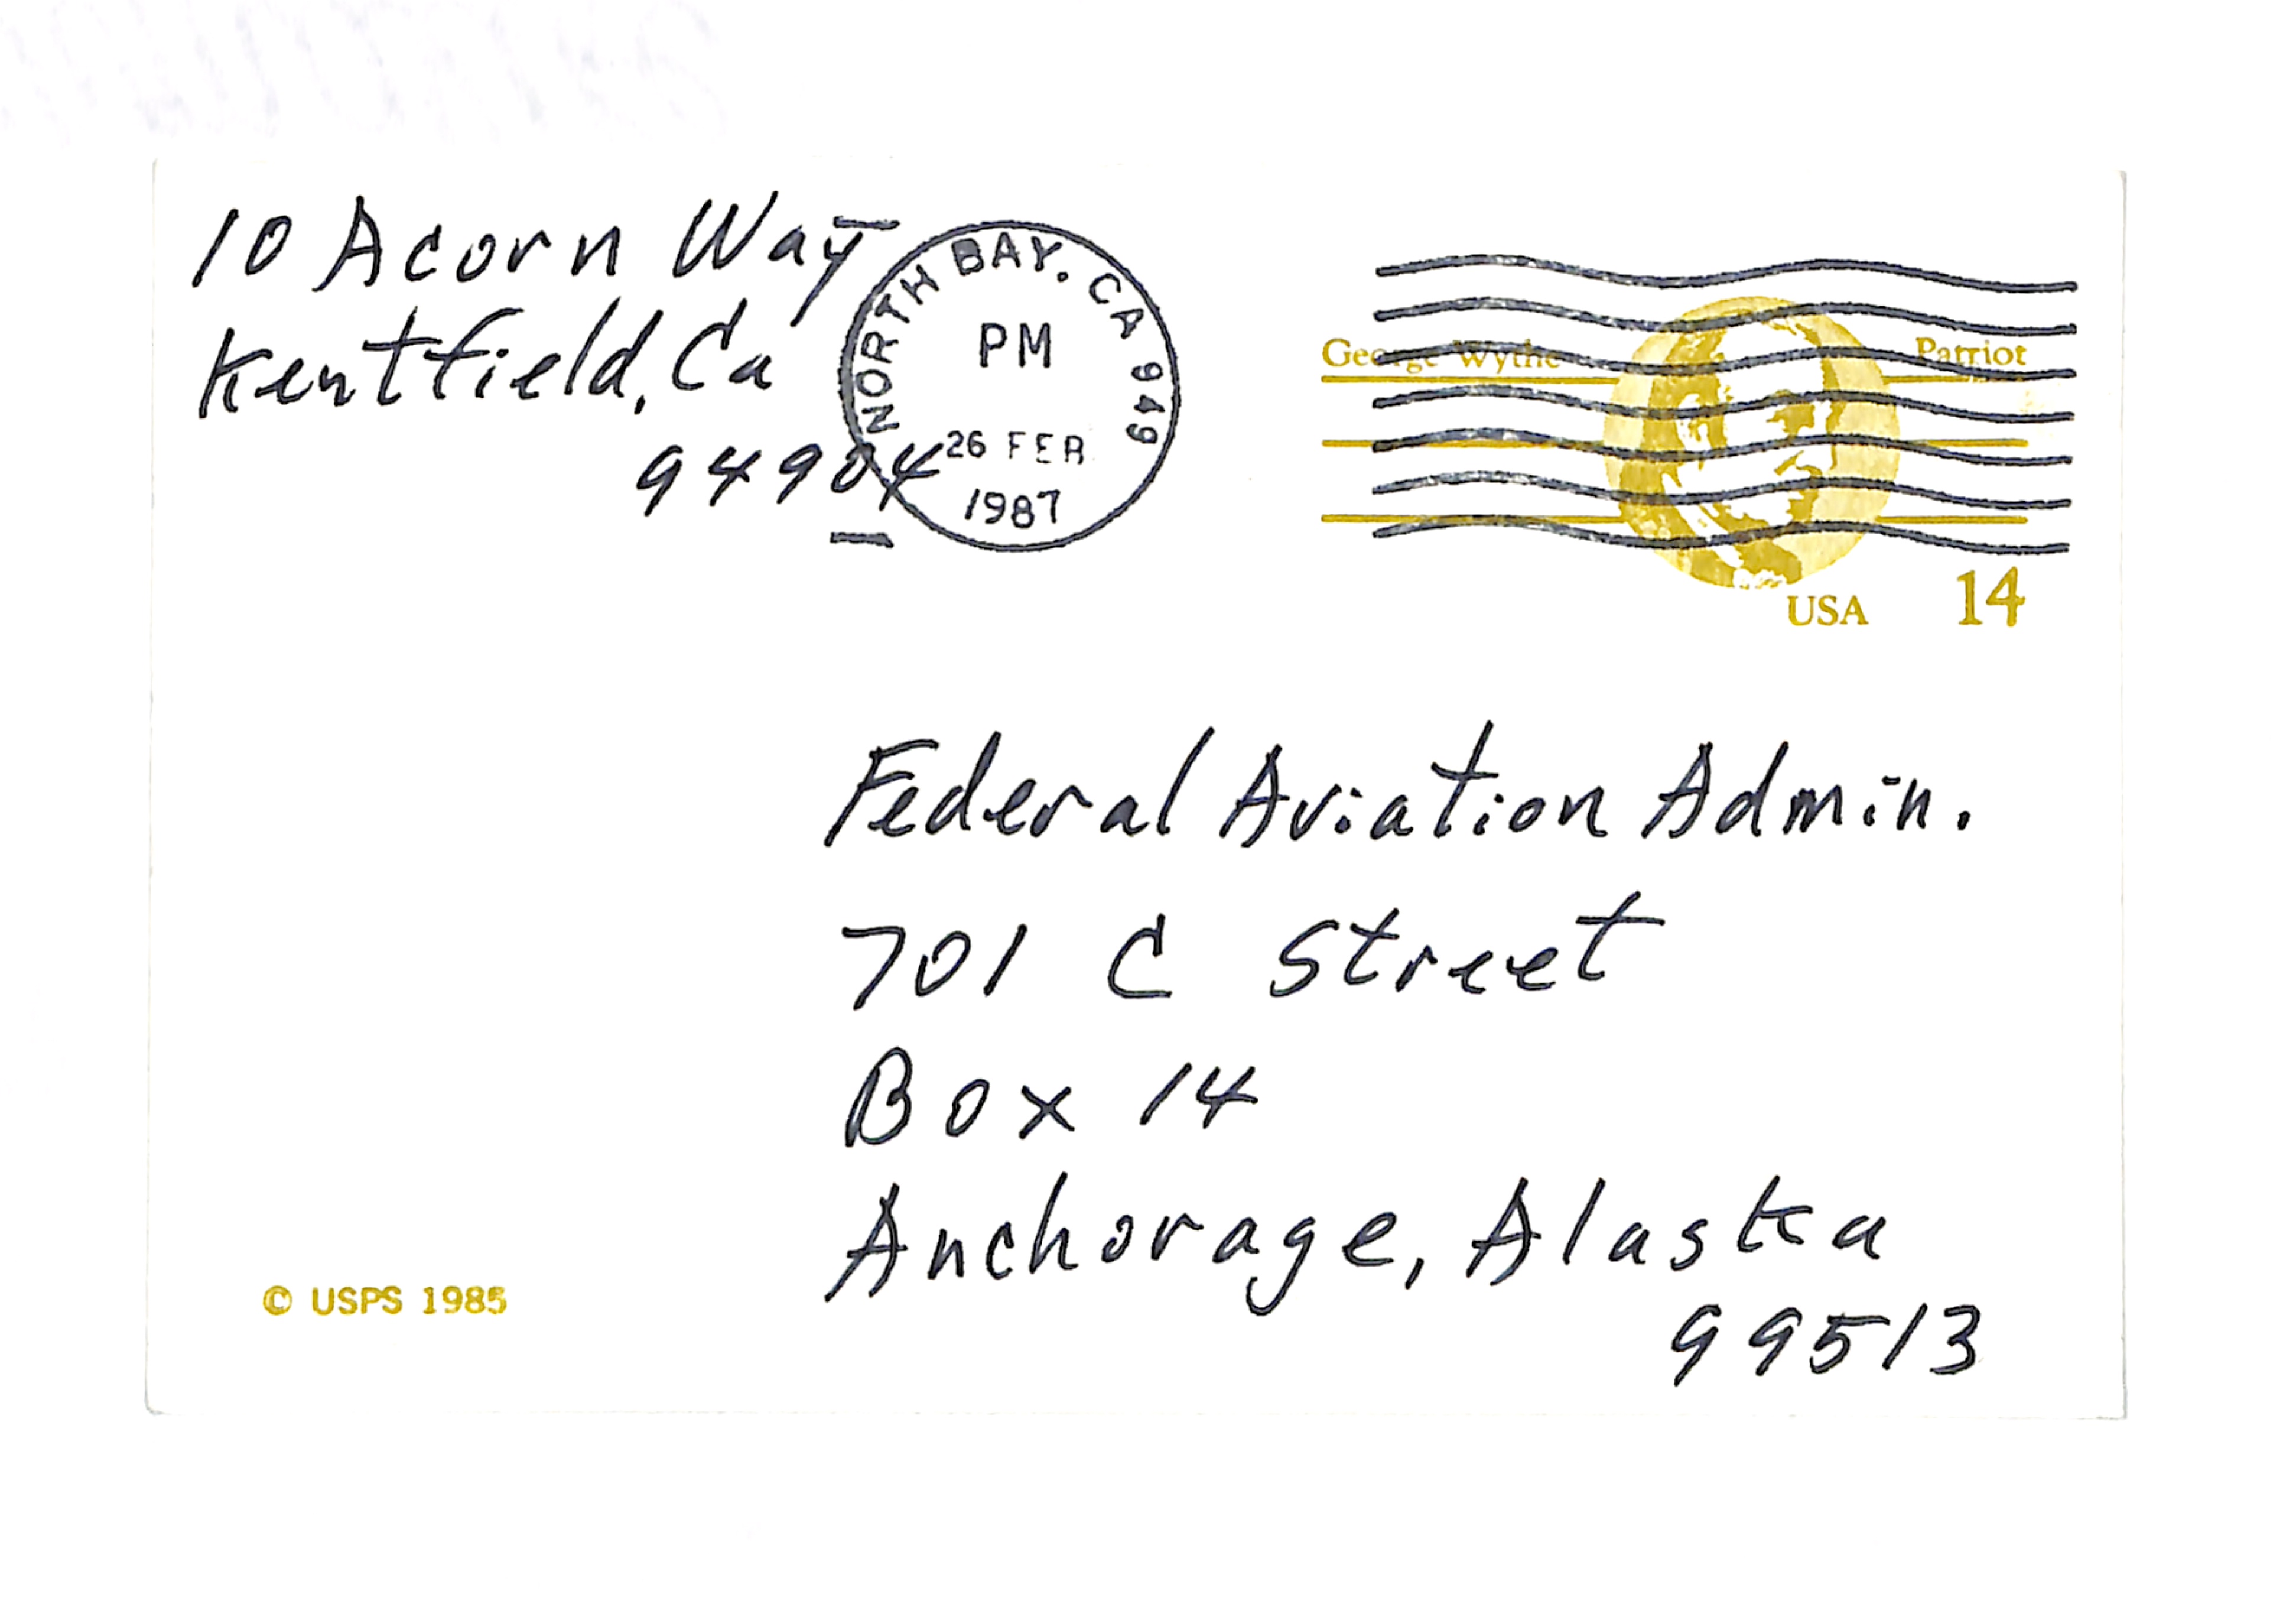 10 Acorn Way
Kentfield, Ca
94904
NORTH BAY, CA 949
PM
26 FEB
1987
George Wythe Patriot
USA 14
Federal Aviation Admin.
701 C Street
Box 14
Anchorage, Alaska
99513
© USPS 1985